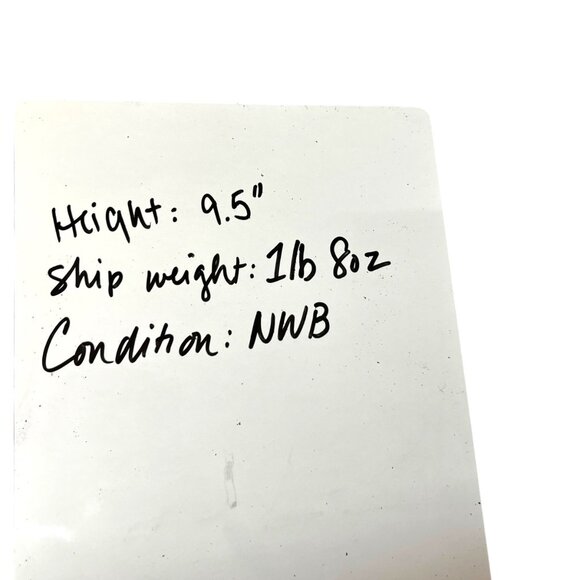 Height: 9.5"
Ship weight: 1lb 8oz
Condition: NWB